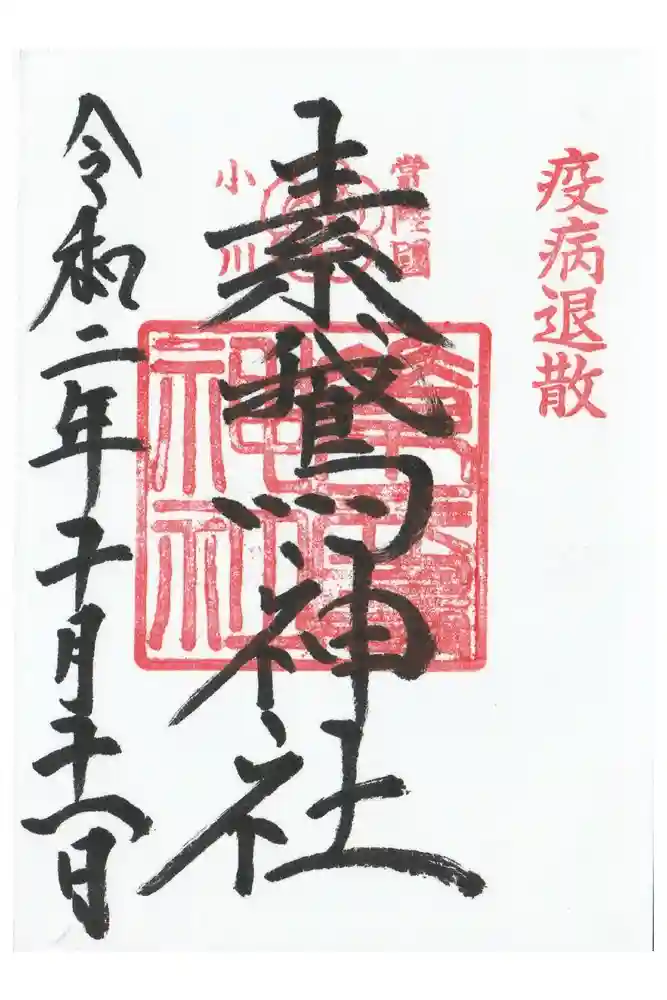 疫病退散
常陸國
小川
素鵞神社
令和二年十月十一日